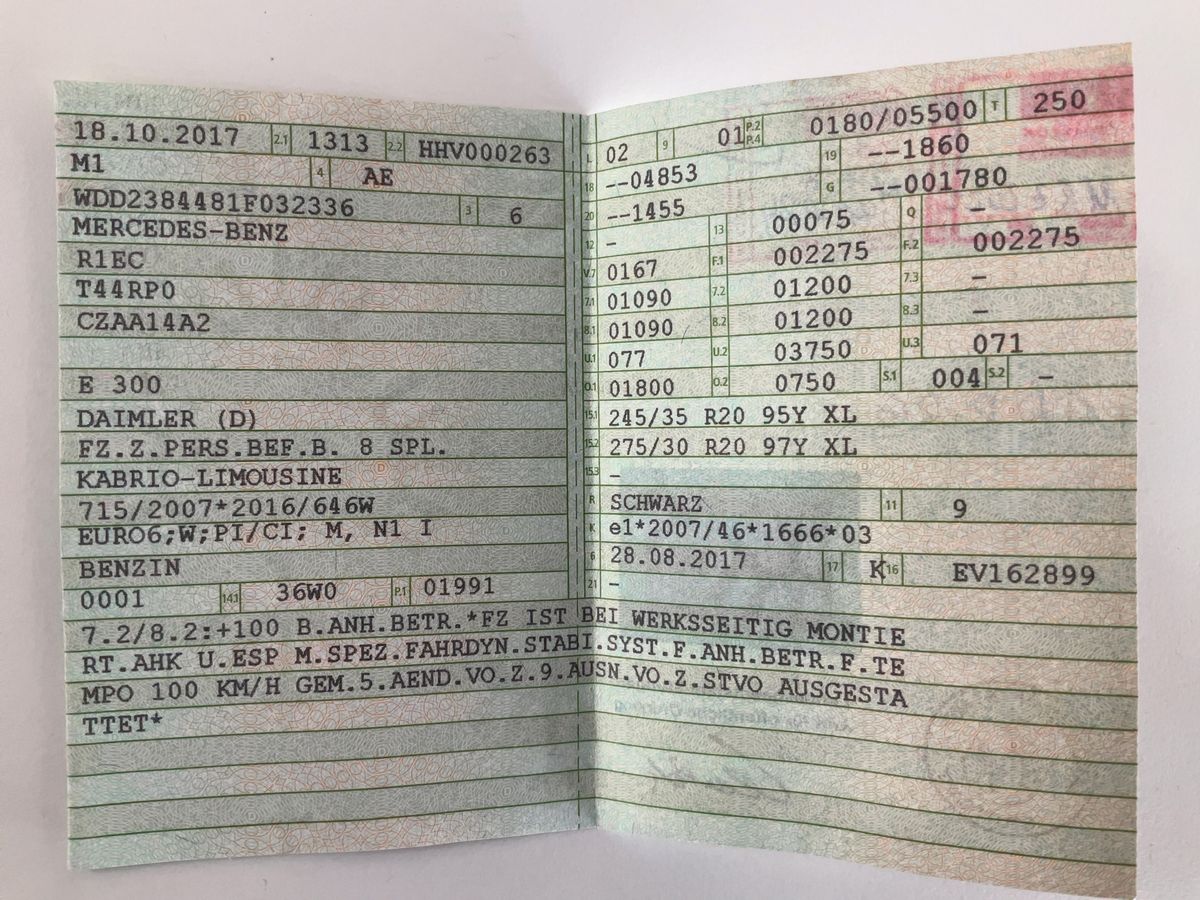 18.10.2017 2.1 1313 2.2 HHV000263
M1 4 AE
WDD2384481F032336 3 6
MERCEDES-BENZ
R1EC
T44RP0
CZAA14A2
E 300
DAIMLER (D)
FZ.Z.PERS.BEF.B. 8 SPL.
KABRIO-LIMOUSINE
715/2007*2016/646W
EURO6;W;PI/CI; M, N1 I
BENZIN
0001 14.1 36W0 P.1 01991
L 02 9 01 P.2 P.4 0180/05500 T 250
18 --04853 19 --1860
20 --1455 G --001780
12 - 13 00075 Q -
V.7 0167 F.1 002275 F.2 002275
7.1 01090 7.2 01200 7.3 -
8.1 01090 8.2 01200 8.3 -
U.1 077 U.2 03750 U.3 071
O.1 01800 O.2 0750 S.1 004 S.2 -
15.1 245/35 R20 95Y XL
15.2 275/30 R20 97Y XL
15.3 -
R SCHWARZ 11 9
K e1*2007/46*1666*03
6 28.08.2017 17 K 16 EV162899
21 -
7.2/8.2:+100 B.ANH.BETR.*FZ IST BEI WERKSSEITIG MONTIE
RT.AHK U.ESP M.SPEZ.FAHRDYN.STABI.SYST.F.ANH.BETR.F.TE
MPO 100 KM/H GEM.5.AEND.VO.Z.9.AUSN.VO.Z.STVO AUSGESTA
TTET*